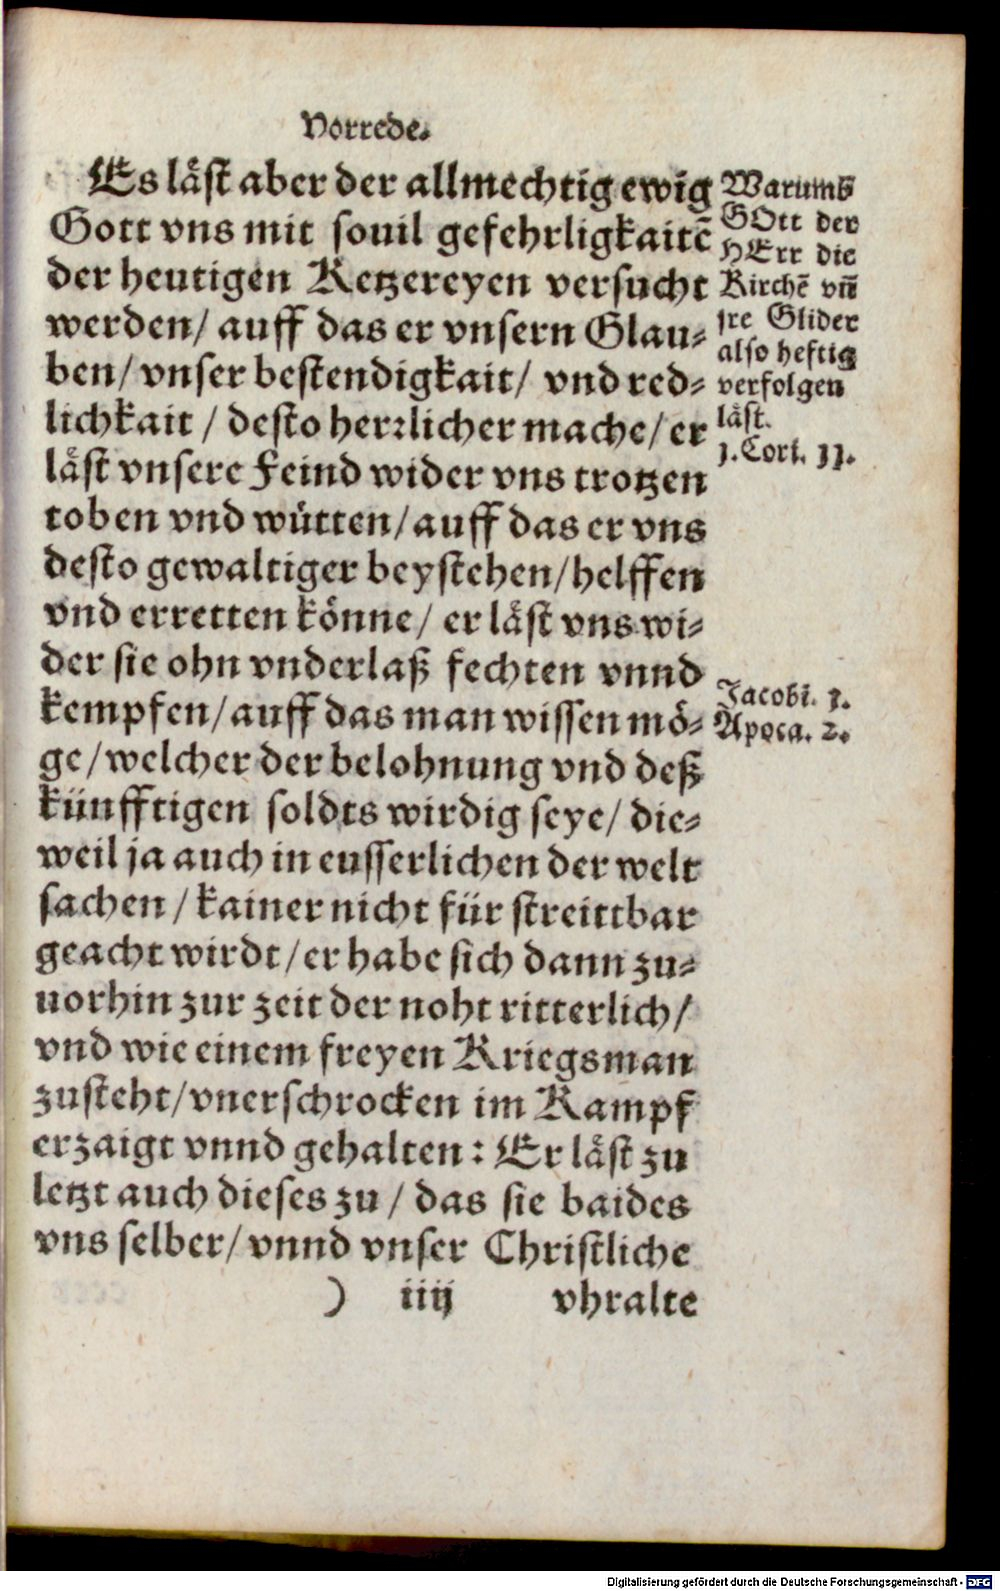 Vorrede.
Es låst aber der allmechtig ewig
Gott vns mit souil gefehrligkaitē
der heutigen Ketzereyen versucht
werden/ auff das er vnsern Glau⸗
ben/ vnser bestendigkait/ vnd red⸗
lichkait / desto herꝛlicher mache/ er
låst vnsere Feind wider vns trotzen
toben vnd wůtten/ auff das er vns
desto gewaltiger beystehen/ helffen
vnd erretten kǒnne/ er låst vns wi⸗
der sie ohn vnderlaß fechten vnnd
kempfen/ auff das man wissen mǒ⸗
ge/ welcher der belohnung vnd deß
künfftigen soldts wirdig seye/ die⸗
weil ja auch in eusserlichen der welt
sachen / kainer nicht für streittbar
geacht wirdt/ er habe sich dann zu⸗
uorhin zur zeit der noht ritterlich/
vnd wie einem freyen Kriegsman
zusteht/ vnerschrocken im Kampf
erzaigt vnnd gehalten: Er låst zu
letzt auch dieses zu / das sie baides
vns selber/ vnnd vnser Christliche
) iiij vhralte
Warumb
GOtt der
HErr die
Kirchē vñ
jre Glider
also heftig
verfolgen
låst.
1. Cori. 11.
Jacobi. 1.
Apoca. 2.
Digitalisierung gefördert durch die Deutsche Forschungsgemeinschaft - DFG